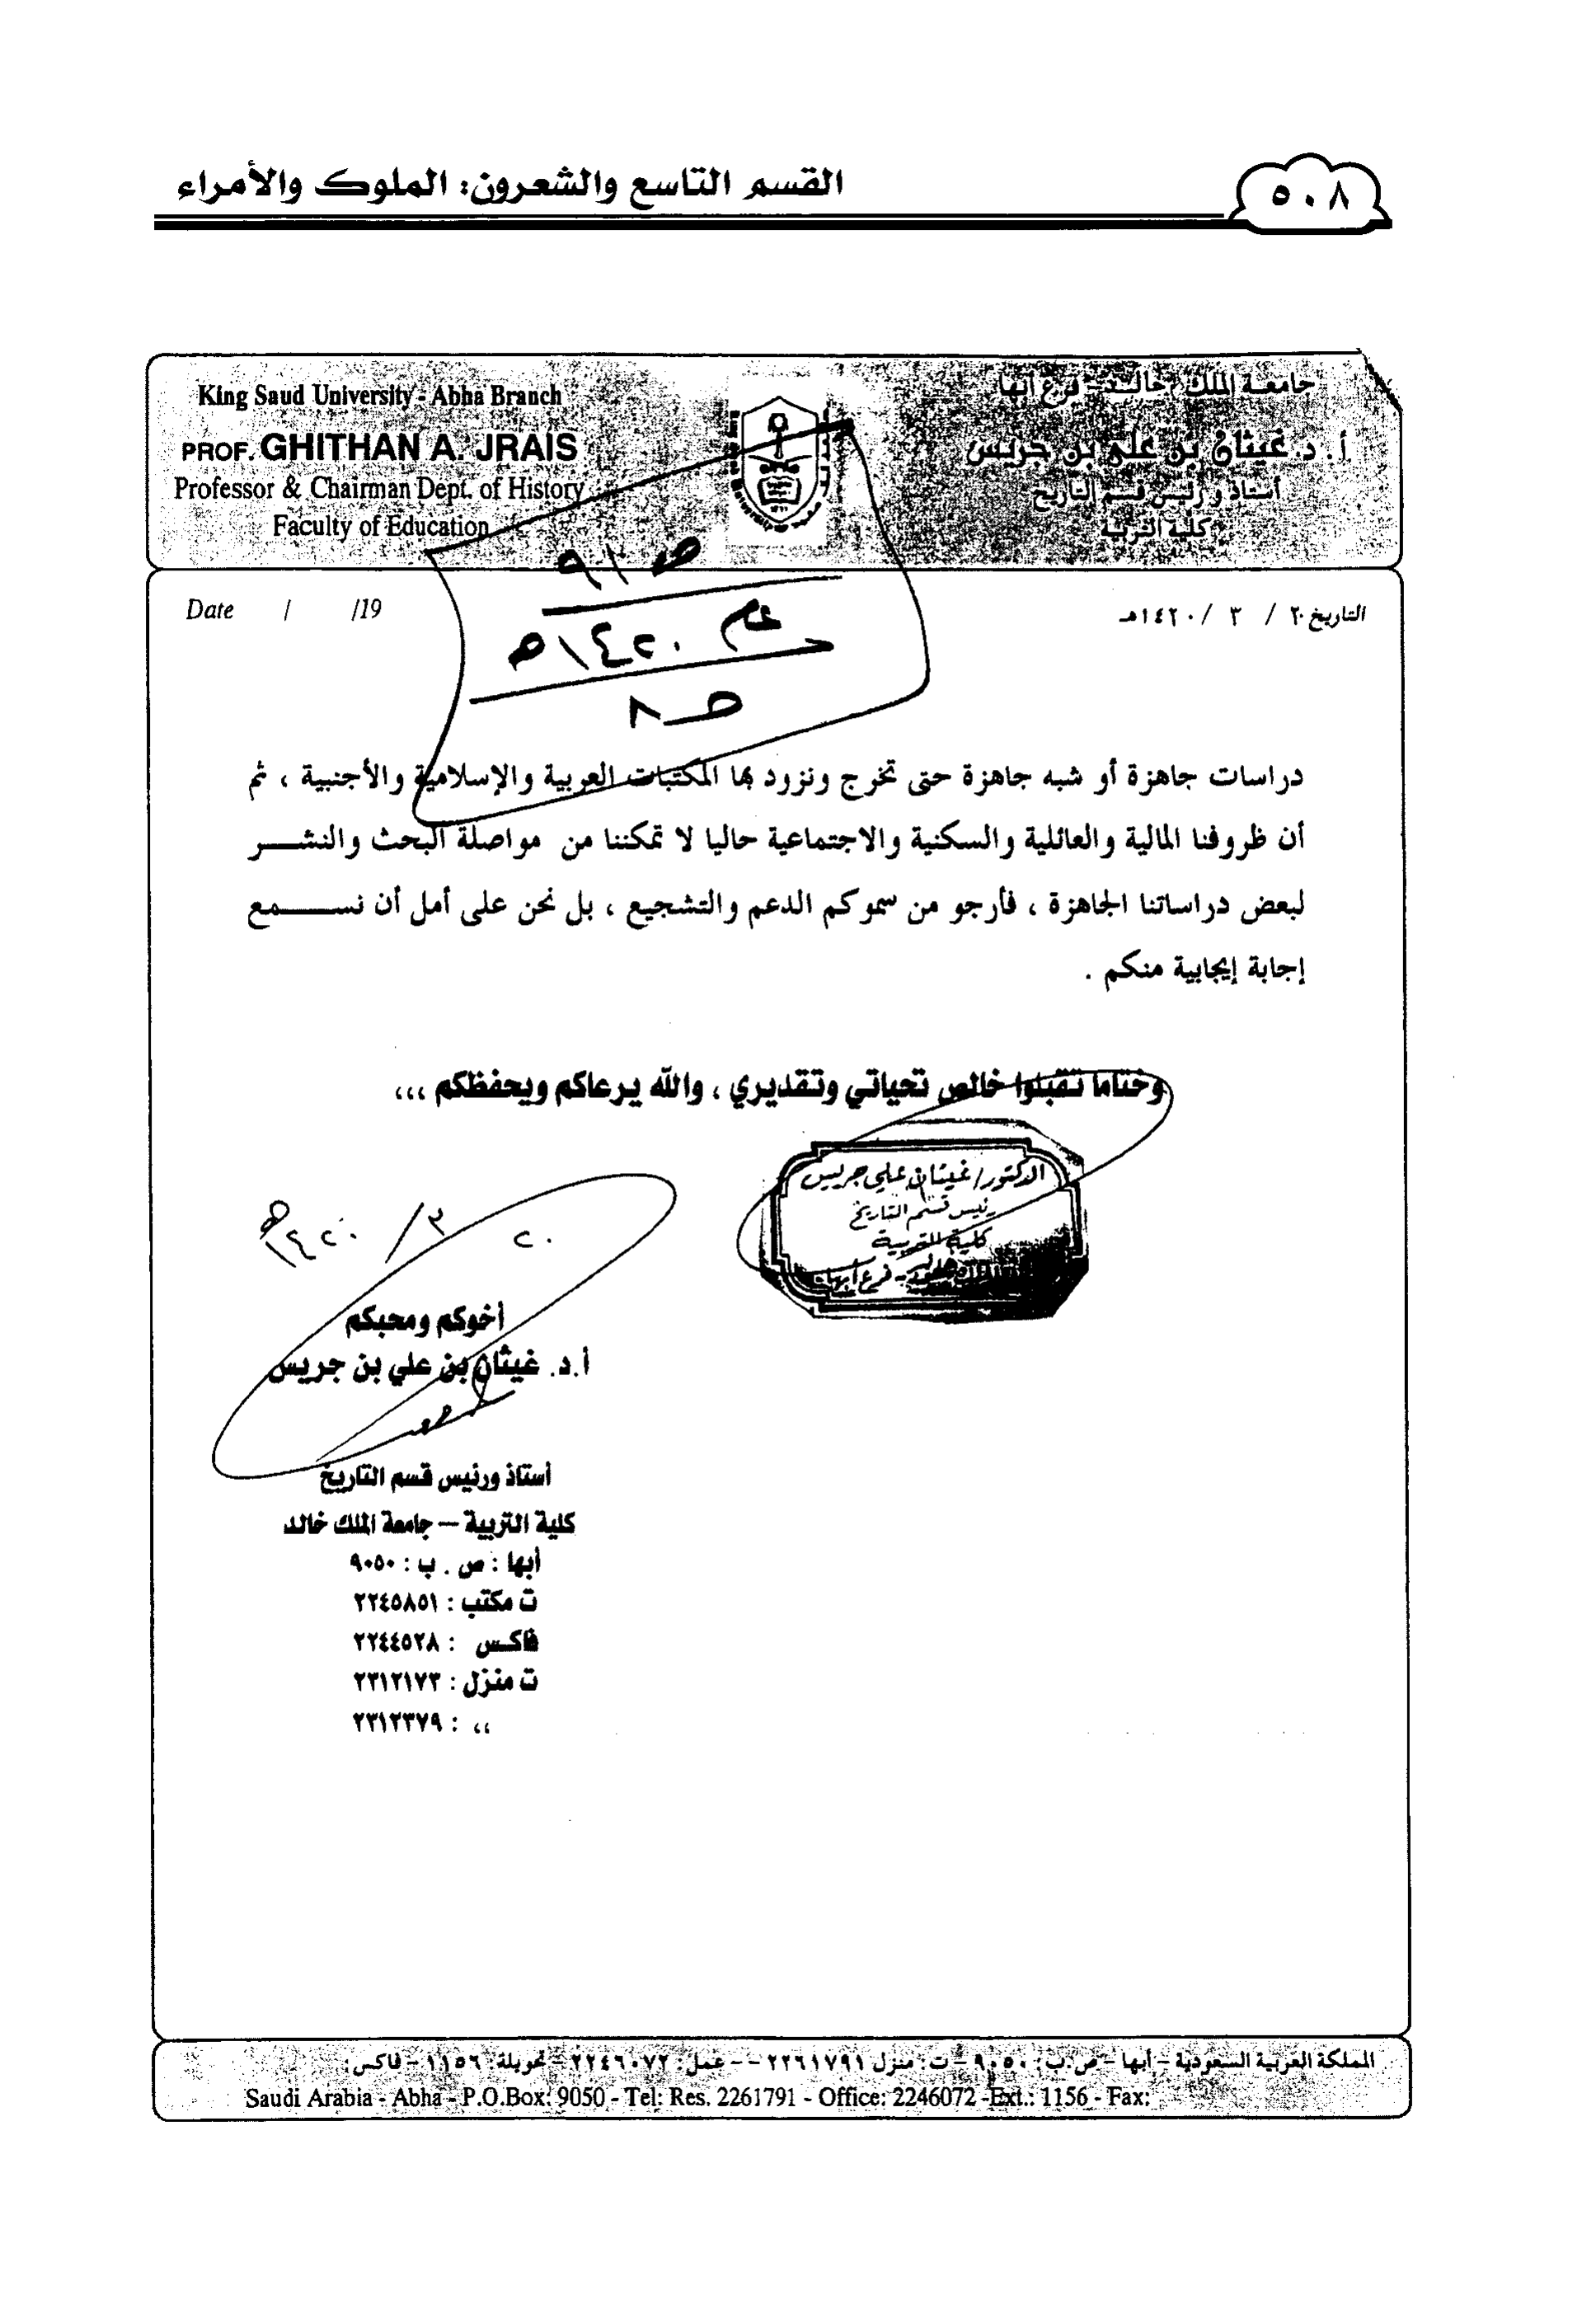 القسم التاسع والشعرون: الملوك والأمراء
٥٠٨
King Saud University - Abha Branch
PROF. GHITHAN A. JRAIS
Professor & Chairman Dept. of History
Faculty of Education
جامعة الملك خالد - فرع أبها
أ. د. غيثان بن علي بن جريس
أستاذ ورئيس قسم التاريخ
كلية التربية
Date / /19
التاريخ ٢٠ / ٣ /١٤٢٠هـ
ص ٩١
عام ١٤٢٠هـ
ص ٨
دراسات جاهزة أو شبه جاهزة حتى تخرج ونزود بها المكتبات العربية والإسلامية والأجنبية ، ثم
أن ظروفنا المالية والعائلية والسكنية والاجتماعية حاليا لا تمكننا من مواصلة البحث والنشر
لبعض دراساتنا الجاهزة ، فأرجو من سموكم الدعم والتشجيع ، بل نحن على أمل أن نسمع
إجابة إيجابية منكم .
وختاما تقبلوا خالص تحياتي وتقديري ، والله يرعاكم ويحفظكم ،،،
الدكتور/ غيثان علي جريس
رئيس قسم التاريخ
كلية التربية
فرع أبها
٢٠ / ٣ / ١٤٢٠هـ
أخوكم ومحبكم
أ.د. غيثان بن علي بن جريس
أستاذ ورئيس قسم التاريخ
كلية التربية – جامعة الملك خالد
أبها : ص . ب : ٩٠٥٠
ت مكتب : ٢٢٤٥٨٥١
فاكس : ٢٢٤٤٥٢٨
ت منزل : ٢٣١٢١٧٣
،، : ٢٣١٢٣٧٩
المملكة العربية السعودية - أبها - ص.ب: ٩٠٥٠ - ت: منزل ٢٢٦١٧٩١ - - عمل: ٢٢٤٦٠٧٢ - تحويلة: ١١٥٦ - فاكس:
Saudi Arabia - Abha - P.O.Box: 9050 - Tel: Res. 2261791 - Office: 2246072 -Ext.: 1156 - Fax: